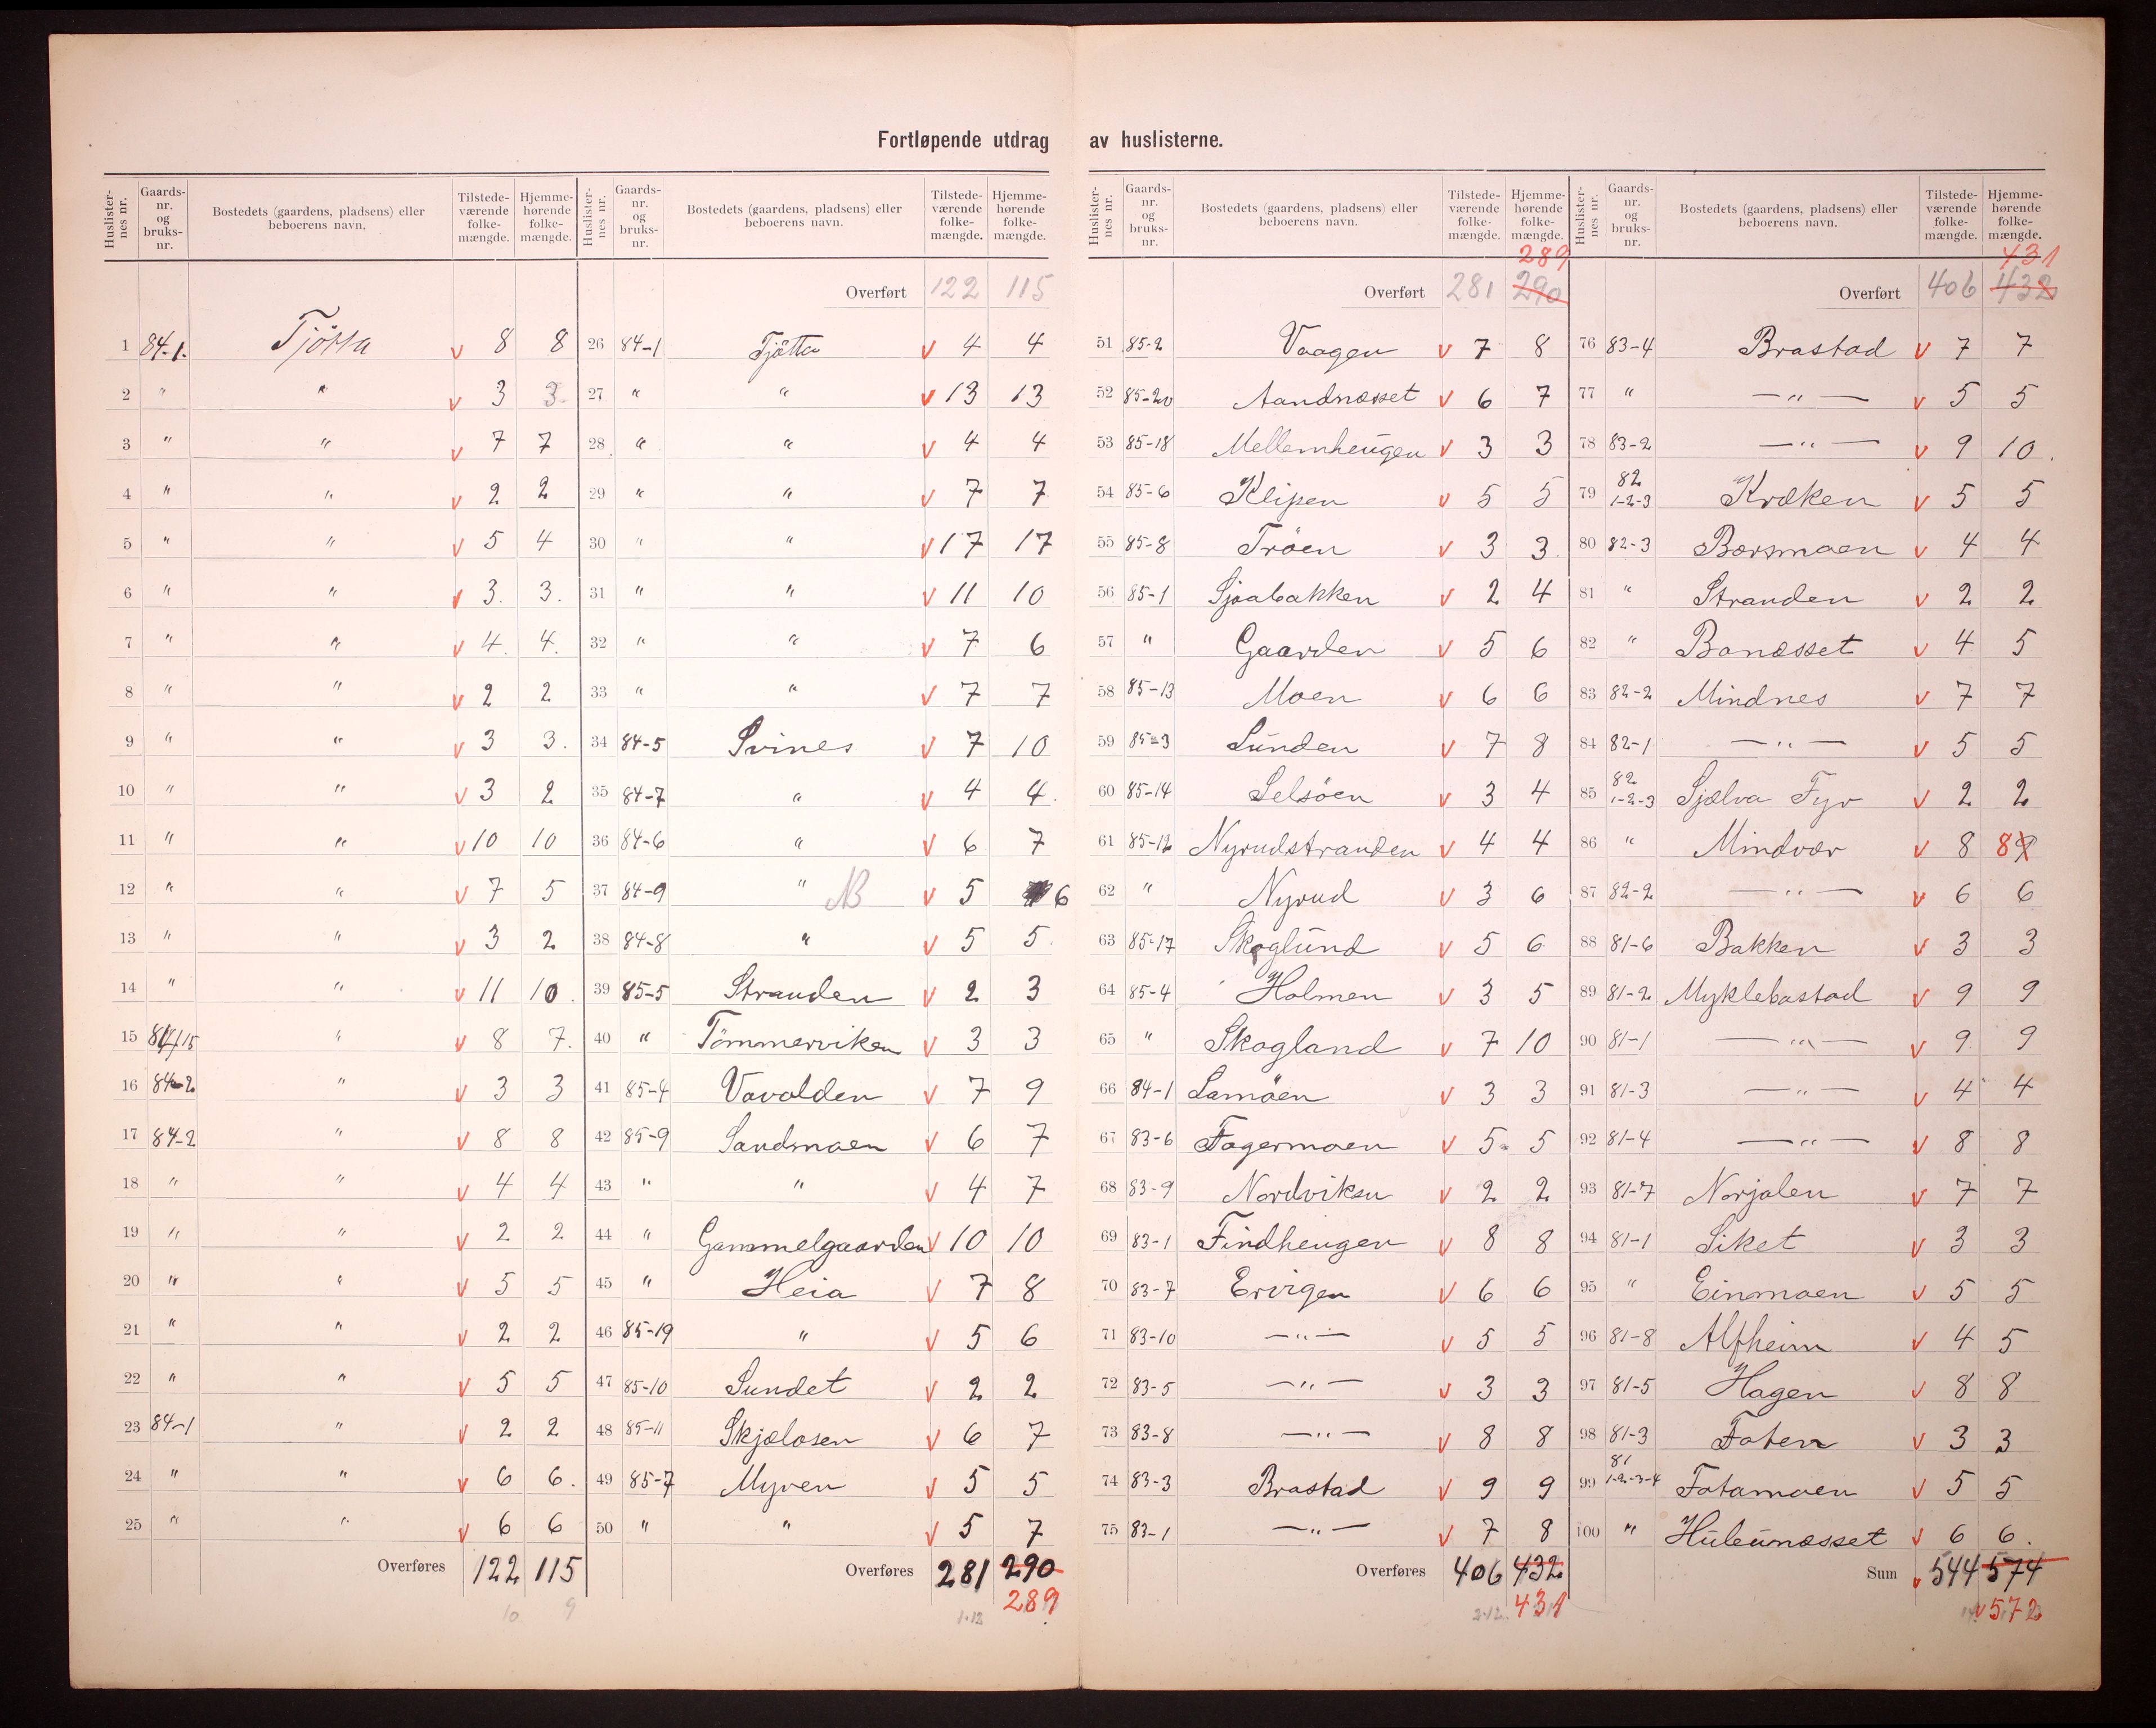 Fortløpende utdrag av huslisterne.
Huslister-nes nr. | Gaards-nr. og bruks-nr. | Bostedets (gaardens, pladsens) eller beboerens navn. | Tilstede-værende folke-mængde. | Hjemme-hørende folke-mængde.
1 84-1. Tjøtta v 8 8
2 " " v 3 3
3 " " v 7 7
4 " " v 2 2
5 " " v 5 4
6 " " v 3. 3.
7 " " v 4. 4.
8 " " v 2 2
9 " " v 3 3.
10 " " v 3 2
11 " " v 10 10
12 " " v 7 5
13 " " v 3 2
14 " " v 11 10.
15 84/15 " v 8 7.
16 84-2 " v 3 3
17 84-2 " v 8 8
18 " " v 4 4
19 " " v 2 2
20 " " v 5 5
21 " " v 2 2
22 " " v 5 5
23 84-1 " v 2 2
24 " " v 6 6.
25 " " v 6 6
Overføres 122 115
10 9
Huslister-nes nr. | Gaards-nr. og bruks-nr. | Bostedets (gaardens, pladsens) eller beboerens navn. | Tilstede-værende folke-mængde. | Hjemme-hørende folke-mængde.
Overført 122 115
26 84-1 Tjötta v 4 4
27 " " v 13 13
28 " " v 4 4
29 " " v 7 7
30 " " v 17 17
31 " " v 11 10
32 " " v 7 6
33 " " v 7 7
34 84-5 Svines v 7 10
35 84-7 " v 4 4.
36 84-6 " v 6 7
37 84-9 " NB v 5 6
38 84-8 " v 5 5
39 85-5 Stranden v 2 3
40 " Tömmerviken v 3 3
41 85-4 Vavolden v 7 9
42 85-9 Sandmoen v 6 7
43 " " v 4 7
44 " Gammelgaarden v 10 10
45 " Heia v 7 8
46 85-19 " v 5 6
47 85-10 Sundet v 2 2
48 85-11 Skjelosen v 6 7
49 85-7 Myren v 5 5
50 " " v 5 7
Overføres 281 290
1.12 289
Huslister-nes nr. | Gaards-nr. og bruks-nr. | Bostedets (gaardens, pladsens) eller beboerens navn. | Tilstede-værende folke-mængde. | Hjemme-hørende folke-mængde.
289
Overført 281 290
51 85-2 Vaagen v 7 8
52 85-20 Aandnæsset v 6 7
53 85-18 Mellemheugen v 3 3
54 85-6 Klipen v 5 5
55 85-8 Tröen v 3 3.
56 85-1 Sjøabakken v 2 4
57 " Gaarden v 5 6
58 85-13 Moen v 6 6
59 85-3 Lunden v 7 8
60 85-14 Selsöen v 3 4
61 85-12 Nyrudstranden v 4 4
62 " Nyrud v 3 6
63 85-17 Skoglund v 5 6
64 85-4 Holmen v 3 5
65 " Skogland v 7 10
66 84-1 Lamöen v 3 3
67 83-6 Fagermoen v 5 5
68 83-9 Nordviken v 2 2
69 83-1 Findheugen v 8 8
70 83-7 Ervigen v 6 6
71 83-10 —"— v 5 5
72 83-5 —"— v 3 3
73 83-8 —"— v 8 8
74 83-3 Brastad v 9 9
75 83-1 —"— v 7 8
Overføres 406 432
2.12. 431
Huslister-nes nr. | Gaards-nr. og bruks-nr. | Bostedets (gaardens, pladsens) eller beboerens navn. | Tilstede-værende folke-mængde. | Hjemme-hørende folke-mængde.
431
Overført 406 432
76 83-4 Brastad v 7 7
77 " —"— v 5 5
78 83-2 —"— v 9 10.
79 82 1-2-3 Kræken v 5 5
80 82-3 Børsmoen v 4 4
81 " Stranden v 2 2
82 " Bonæsset v 4 5
83 82-2 Mindnes v 7 7
84 82-1 —"— v 5 5
85 82 1-2-3 Sjælva Fyr v 2 2
86 " Mindvær v 8 8 9
87 82-2 —"— v 6 6
88 81-6 Bakken v 3 3
89 81-2 Myklebostad v 9 9
90 81-1 —"— v 9 9
91 81-3 —"— v 4 4
92 81-4 —"— v 8 8
93 81-7 Norjalen v 7 7
94 81-1 Siket v 3 3
95 " Einmoen v 5 5
96 81-8 Alfheim v 4 5
97 81-5 Hagen v 8 8
98 81-3 Foten v 3 3
99 81 1-2-3-4 Fotamoen v 5 5
100 " Huleunæsset v 6 6.
Sum v 544 574
v 572